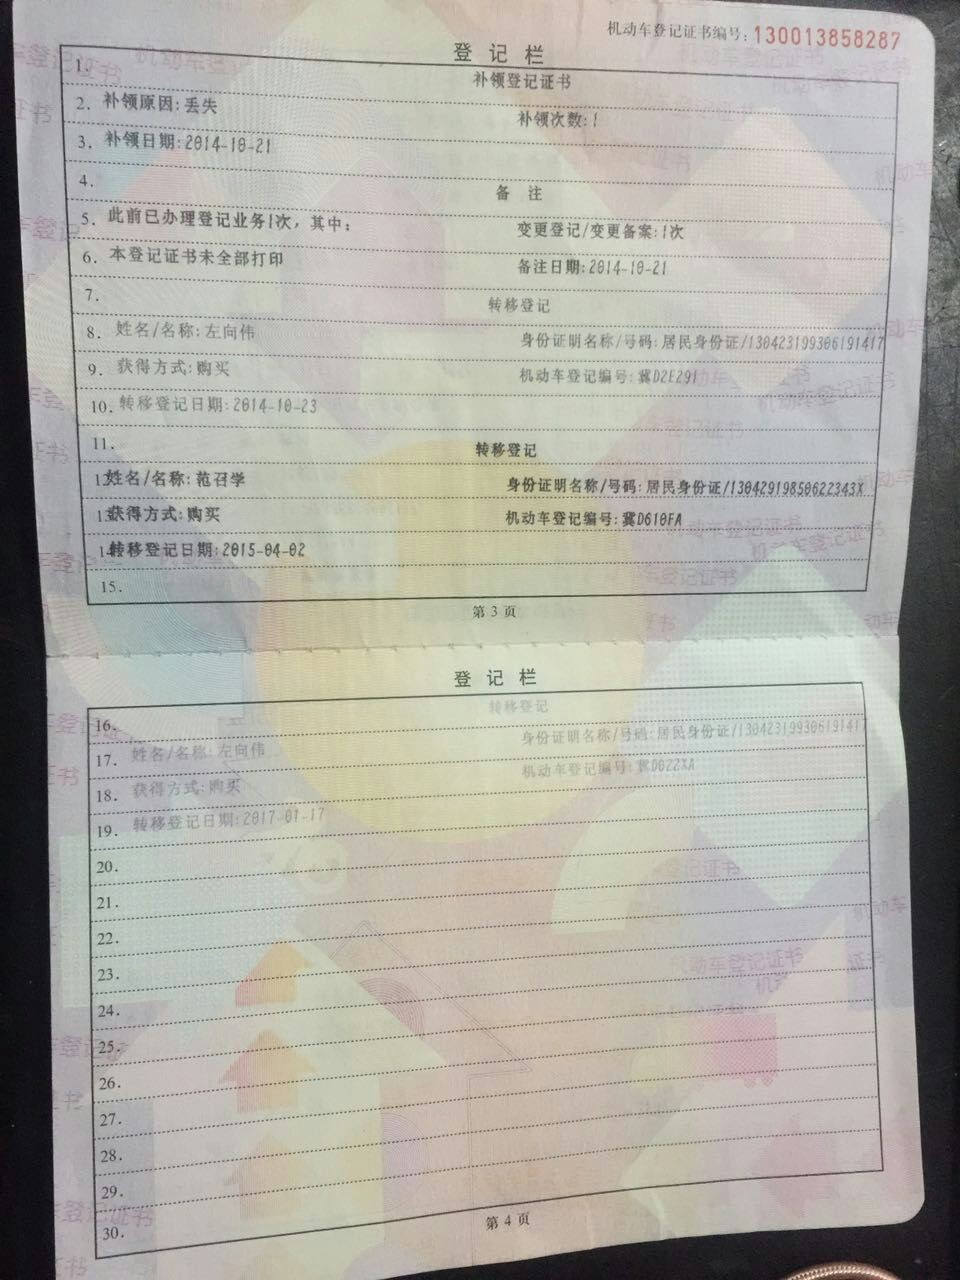 机动车登记证书编号：130013858287
登 记 栏
1. 补领登记证书
2. 补领原因:丢失 补领次数:1
3. 补领日期:2014-10-21
4. 备 注
5. 此前已办理登记业务1次，其中： 变更登记/变更备案:1次
6. 本登记证书未全部打印 备注日期:2014-10-21
7. 转移登记
8. 姓名/名称:左向伟 身份证明名称/号码:居民身份证/130423199306191417
9. 获得方式:购买 机动车登记编号:冀D2E291
10. 转移登记日期:2014-10-23
11. 转移登记
12. 姓名/名称:范召学 身份证明名称/号码:居民身份证/13042919850622343X
13. 获得方式:购买 机动车登记编号:冀D610FA
14. 转移登记日期:2015-04-02
15.
第 3 页
登 记 栏
16. 转移登记
17. 姓名/名称:左向伟 身份证明名称/号码:居民身份证/130423199306191417
18. 获得方式:购买 机动车登记编号:冀D022XA
19. 转移登记日期:2017-01-17
20.
21.
22.
23.
24.
25.
26.
27.
28.
29.
30.
第 4 页